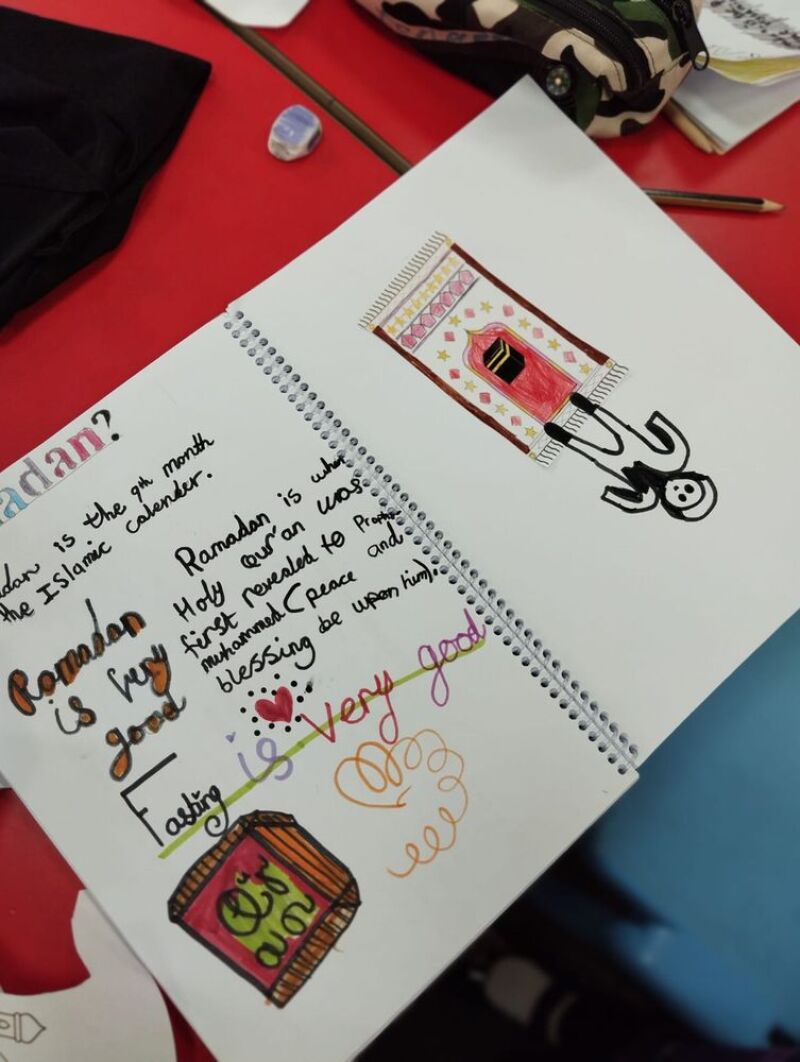 adan?
dan is the 9th month
the Islamic calender.
Ramadan is whe
Holy Qur'an was
first revealed to
muhammed (peace and
blessing be upon him).
Ramadan
is very
good
Fasting is very good
Qur
an